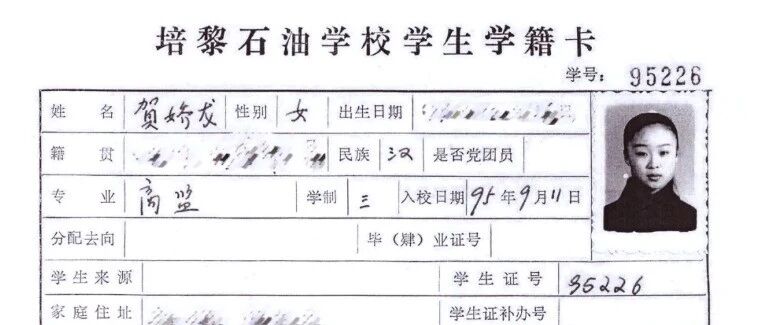 培黎石油学校学生学籍卡
学号: 95226
姓 名 贺娇龙 性别 女 出生日期
籍 贯 民族 汉 是否党团员
专 业 商监 学制 三 入校日期 95年9月11日
分配去向 毕（肄）业证号
学生来源 学生证号 95226
家庭住址 学生证补办号